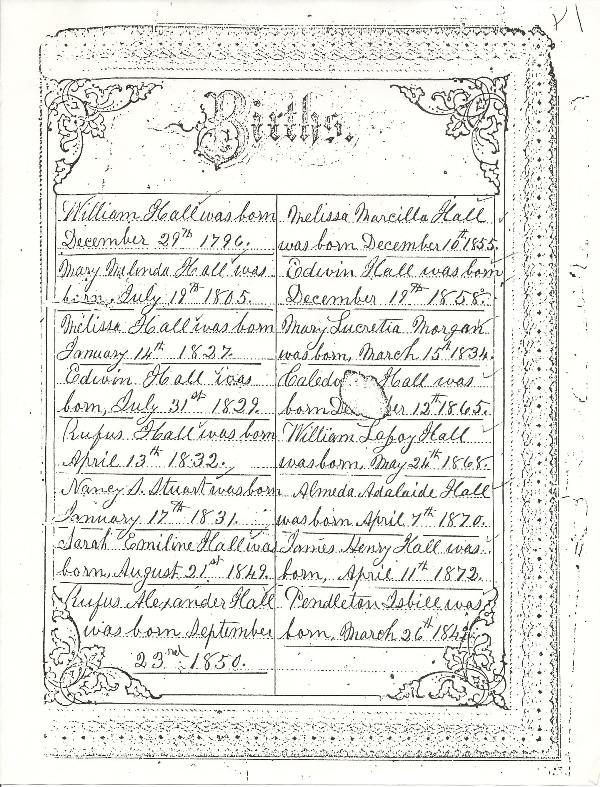 P1
Births.
William Hall was born
December 29th 1796.
Mary Melinda Hall was
born, July 19th 1805.
Melissa Hall was born
January 14th 1827.
Edwin Hall was
born, July 31st 1829.
Rufus Hall was born
April 13th 1832.
Nancy S. Stuart was born
January 17th 1831.
Sarah Emiline Hall was
born, August 21st 1849.
Rufus Alexander Hall
was born September
23rd 1850.
Melissa Marcilla Hall
was born December 10th 1855.
Edwin Hall was born
December 19th 1858.
Mary Lucretia Morgan
was born, March 15th 1834.
Hall was
born 12th 1865.
William Lafoy Hall
was born, May 24th 1868.
Almeda Adalaide Hall
was born April 7th 1870.
James Henry Hall was
born, April 11th 1872.
Pendleton Isbill was
born, March 26th